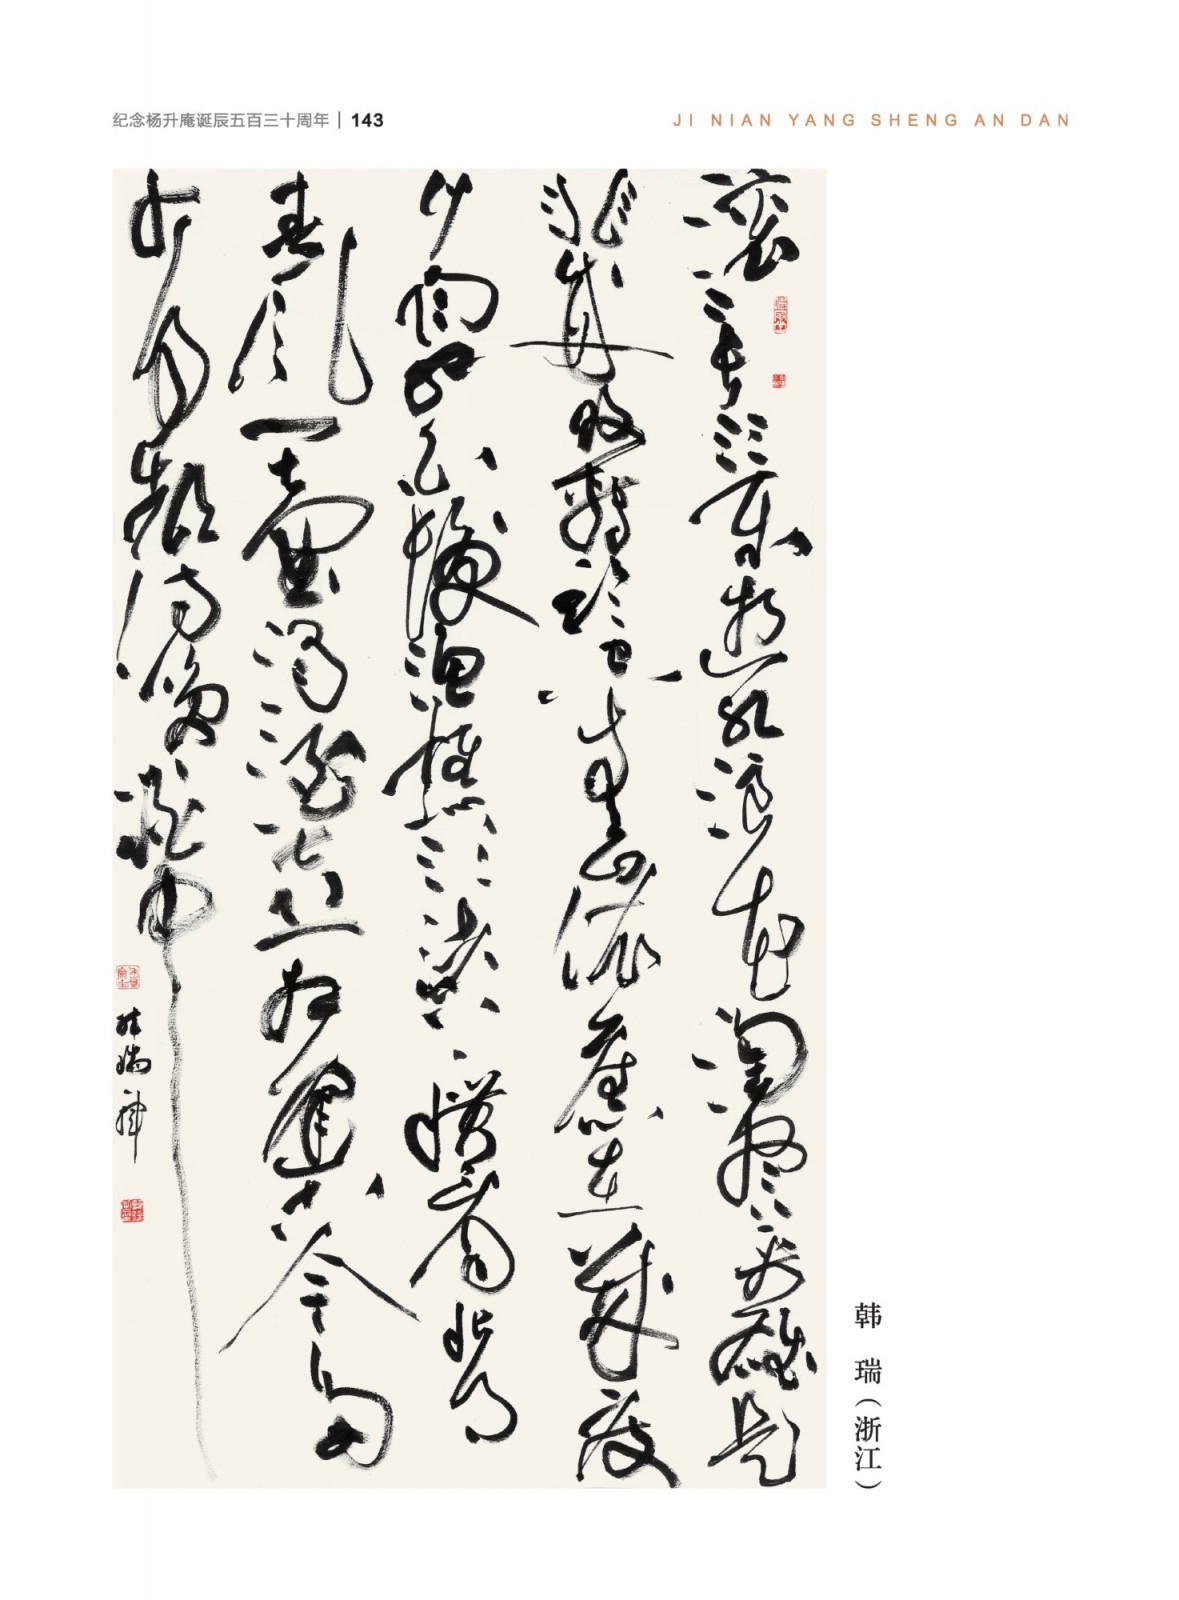 纪念杨升庵诞辰五百三十周年 | 143
JI NIAN YANG SHENG AN DAN
滚滚長江東逝水浪花淘盡英雄是
非成敗轉頭空青山依舊在幾度
夕陽紅白髮漁樵江渚上慣看秋月
春風一壺濁酒喜相逢古今多
少事都付笑談中
韓瑞書
韩 瑞（浙江）